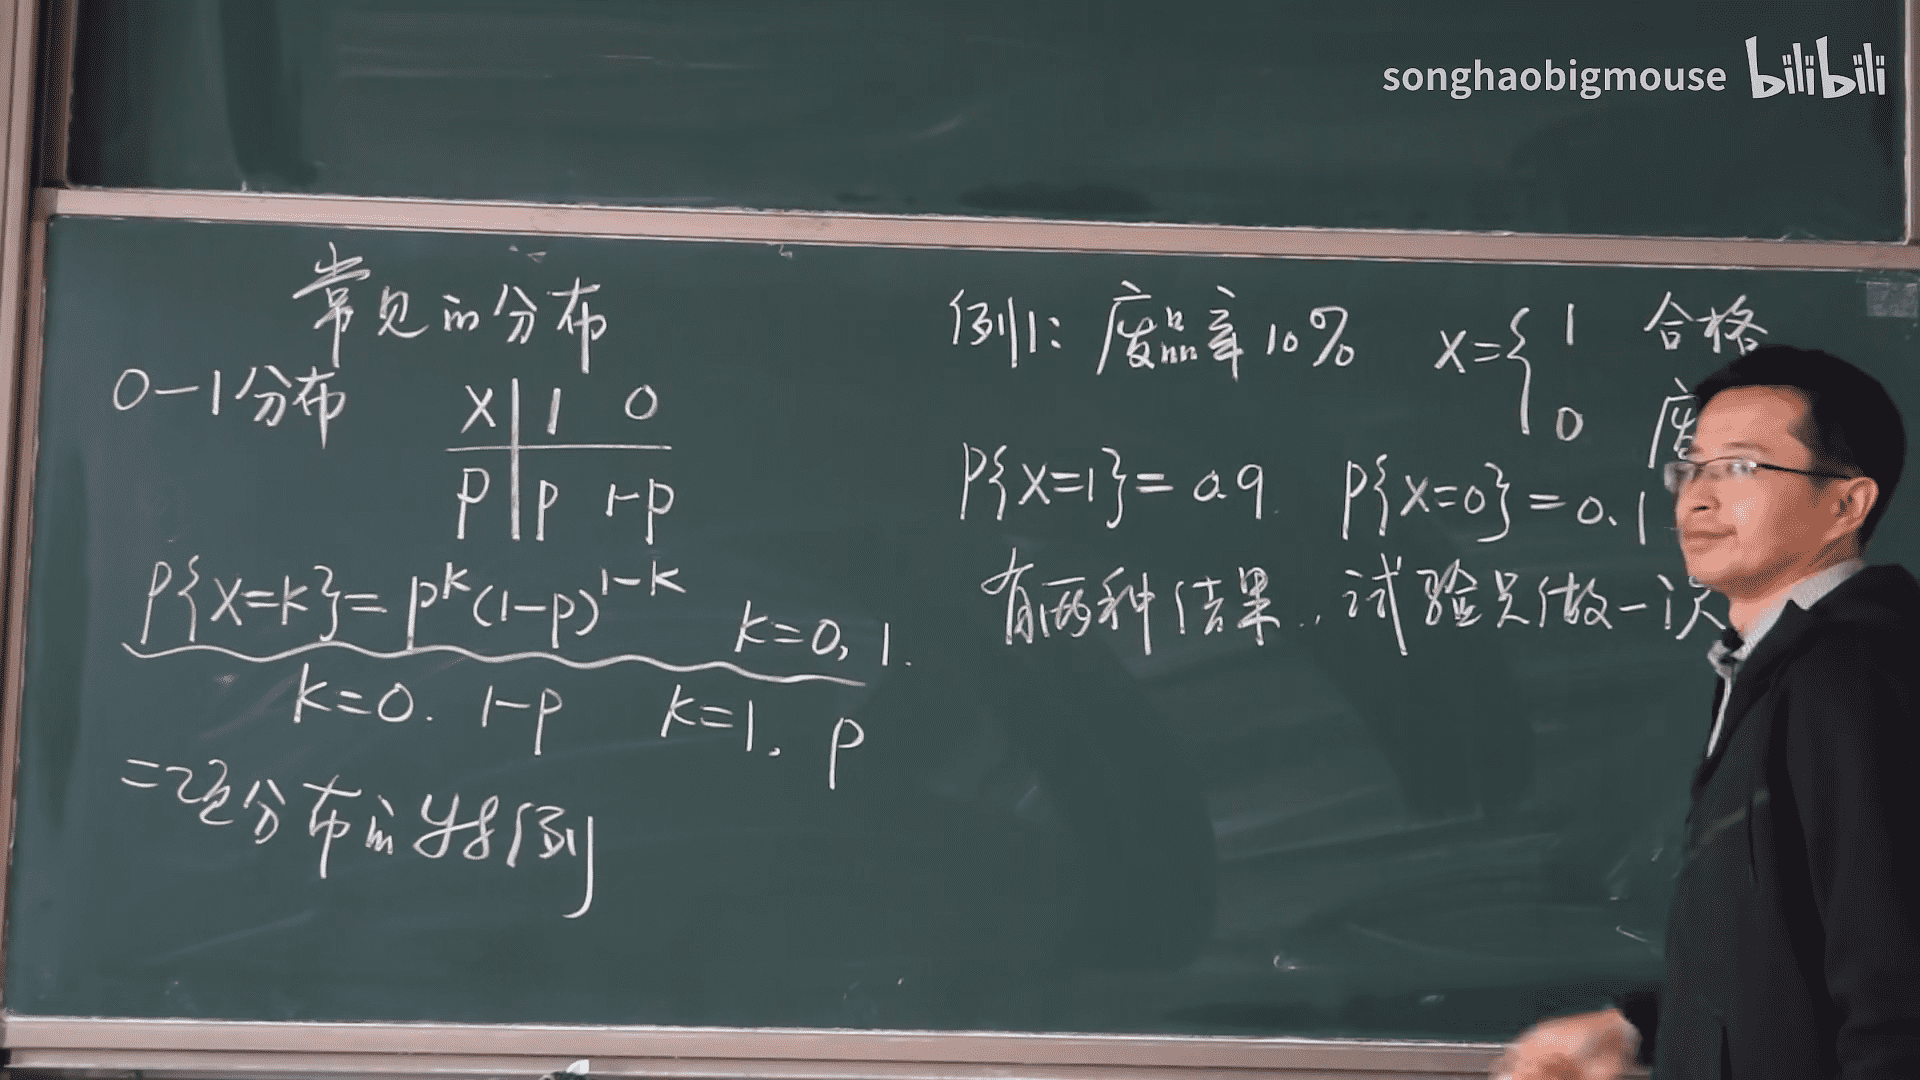 songhaobigmouse bilibili
常见的分布
0-1分布
X 1 0
P p 1-p
P{X=k}=p^k(1-p)^{1-k} k=0,1.
k=0. 1-p k=1, p
二项分布的特例
例1: 废品率10% X={ 1 合格
0 废
P{X=1}=0.9 P{X=0}=0.1
有两种结果.,试验只做一次